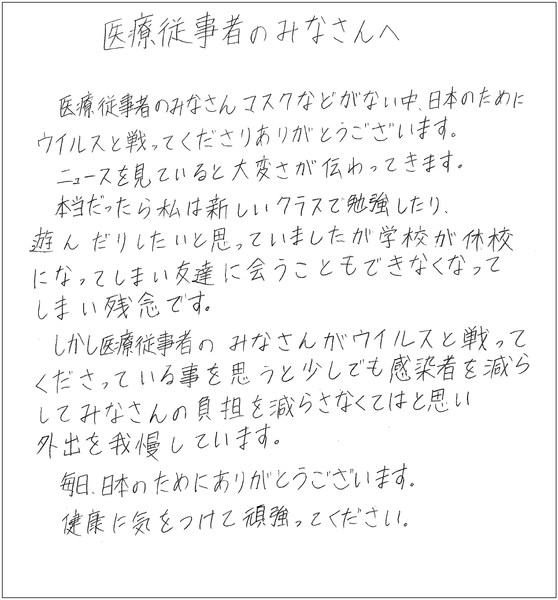 医療従事者のみなさんへ
医療従事者のみなさんマスクなどがない中、日本のために
ウイルスと戦ってくださりありがとうございます。
ニュースを見ていると大変さが伝わってきます。
本当だったら私は新しいクラスで勉強したり、
遊んだりしたいと思っていましたが学校が休校
になってしまい友達に会うこともできなくなって
しまい残念です。
しかし医療従事者のみなさんがウイルスと戦って
くださっている事を思うと少しでも感染者を減ら
してみなさんの負担を減らさなくてはと思い
外出を我慢しています。
毎日、日本のためにありがとうございます。
健康に気をつけて頑強ってください。